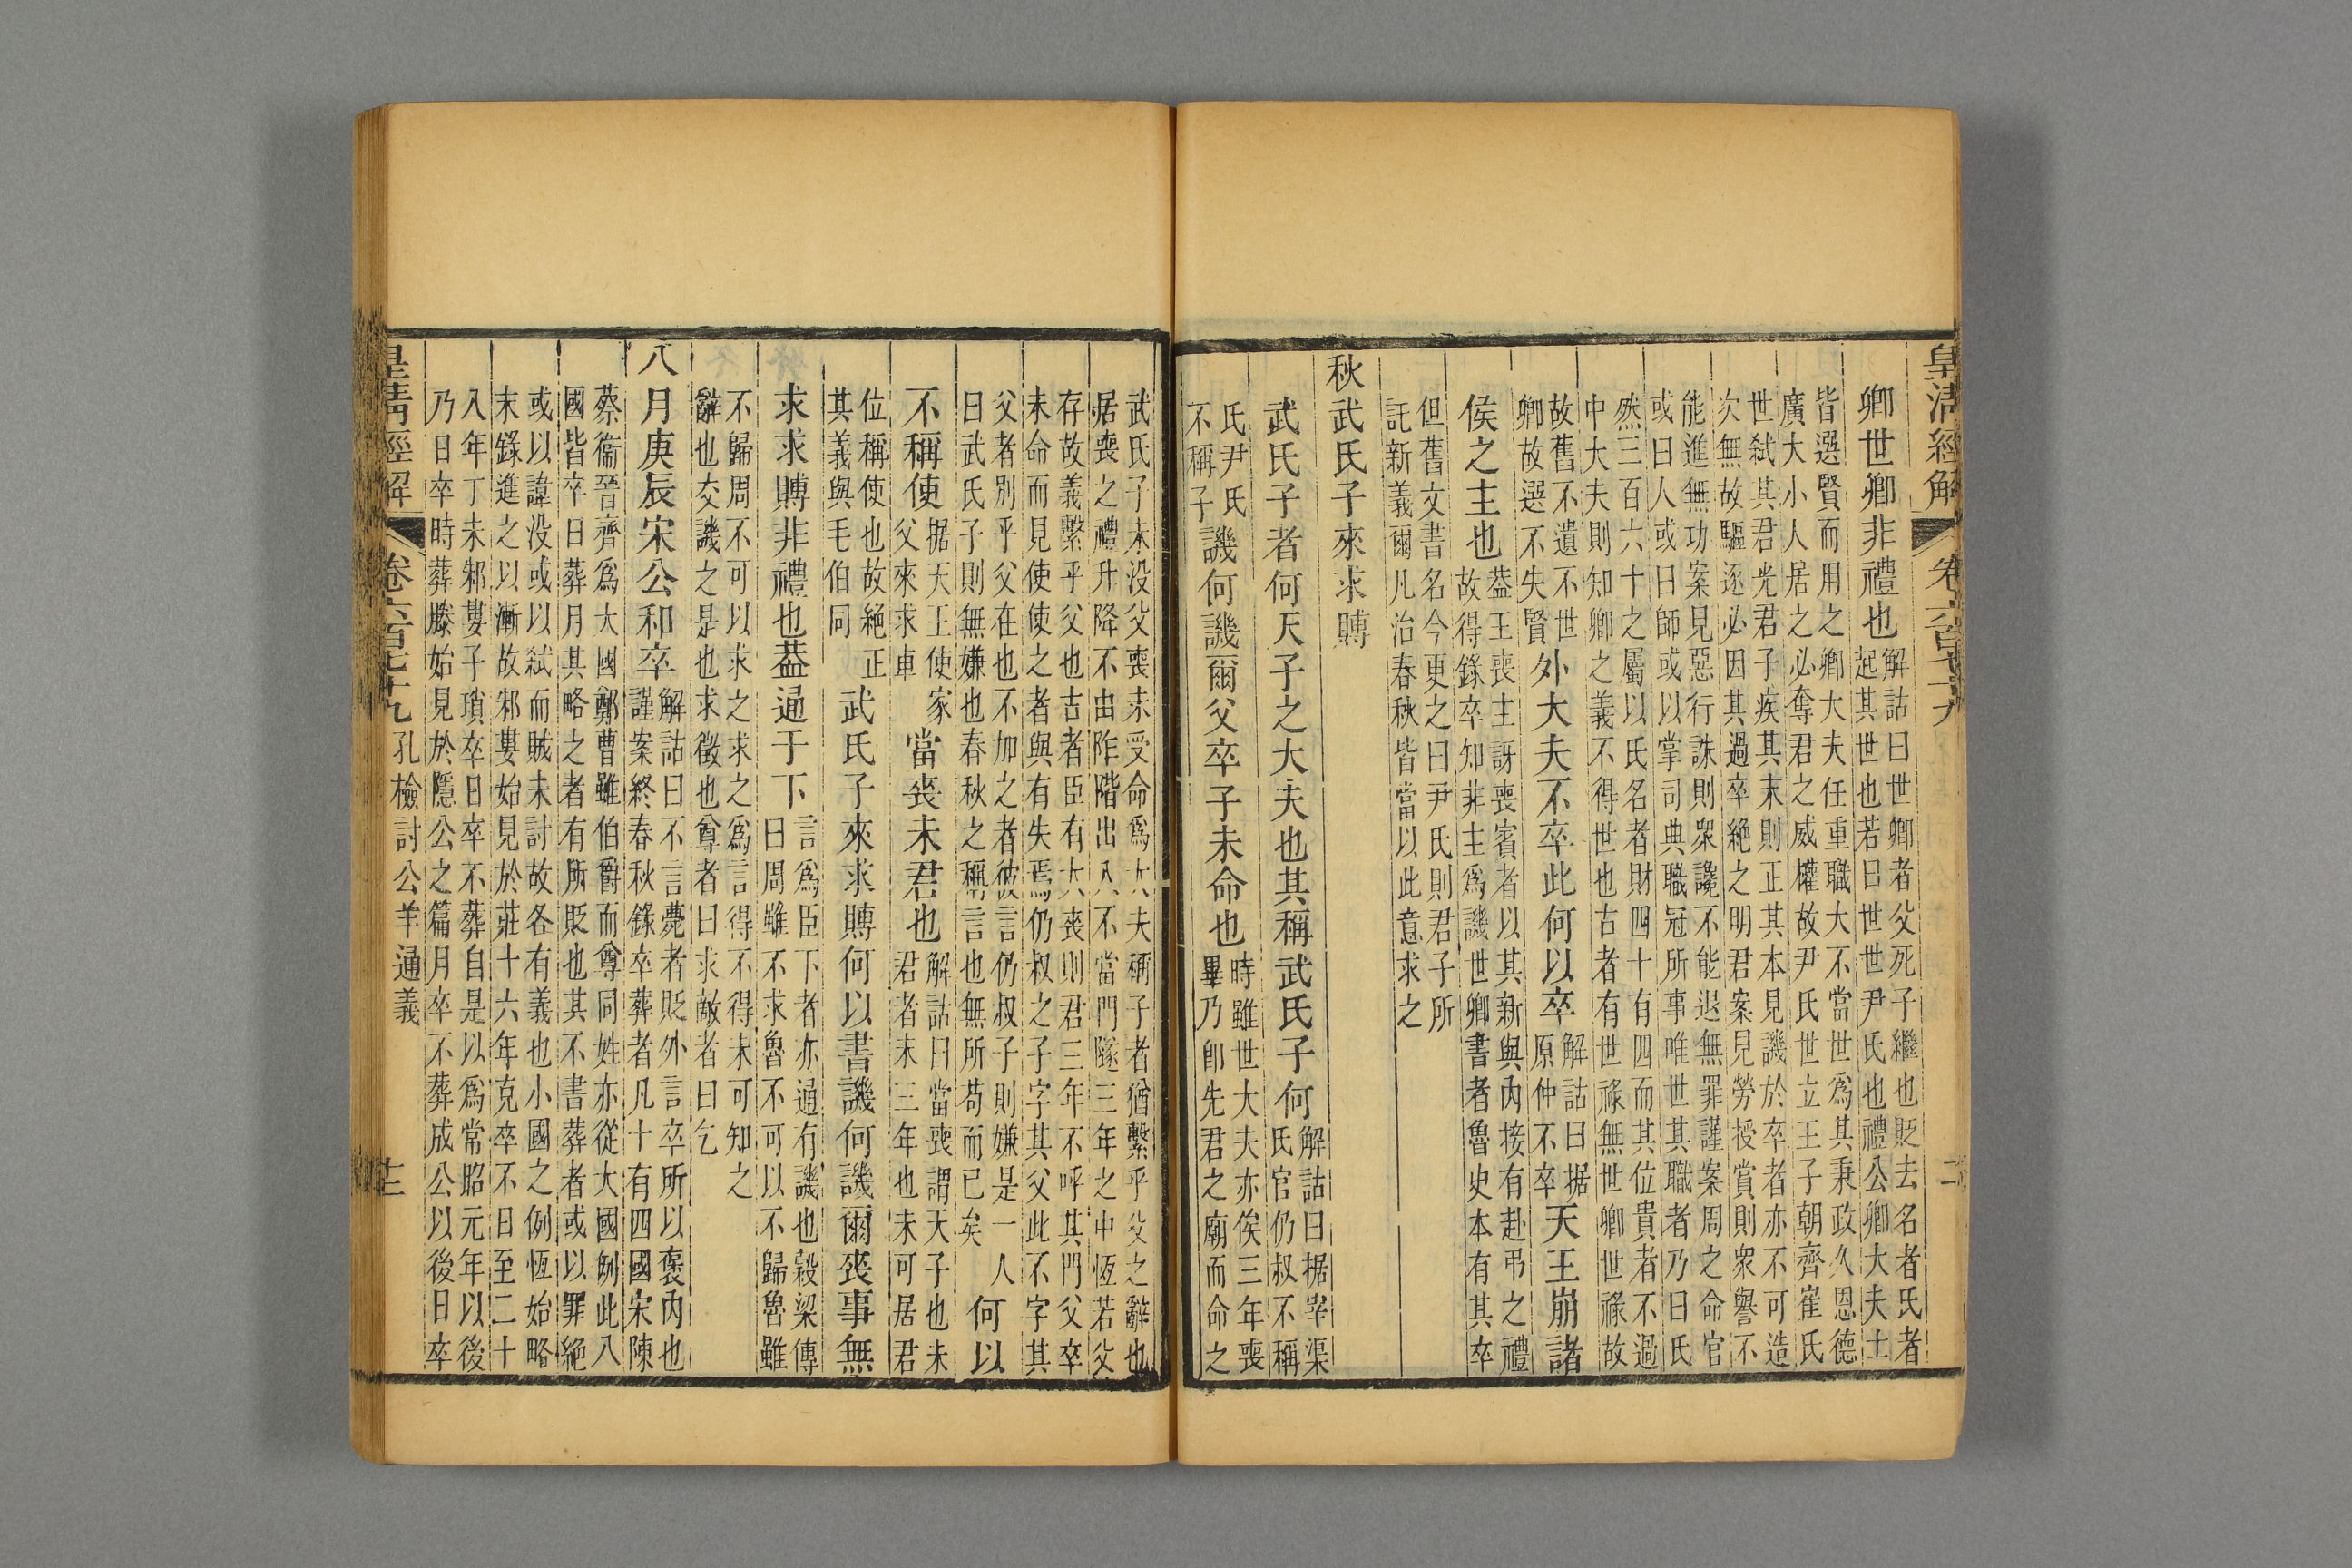 皇清經解　卷六百七十九　二
卿世卿非禮也
解詁曰世卿者父死子繼也貶去名者氏者
起其世也若曰世世尹氏也禮公卿大夫士
皆選賢而用之卿大夫任重職大不當世爲其秉政久恩德
廣大小人居之必奪君之威權故尹氏世立王子朝齊崔氏
世弒其君光君子疾其末則正其本見譏於卒者亦不可造
次無故驅逐必因其過卒絕之明君案見勞授賞則衆譽不
能進無功案見惡行誅則衆讒不能退無罪謹案周之命官
或曰人或曰師或以掌司典職冠所事唯世其職者乃曰氏
然三百六十之屬以氏名者財四十有四而其位貴者不過
中大夫則知卿之義不得世也古者有世祿無世卿世祿故
故舊不遺不世
卿故選不失賢
外大夫不卒此何以卒
解詁曰据
原仲不卒
天王崩諸
侯之主也
葢王喪主訝喪賓者以其新與內接有赴弔之禮
故得錄卒知非主爲譏世卿書者魯史本有其卒
但舊文書名今更之曰尹氏則君子所
託新義爾凡治春秋皆當以此意求之
秋武氏子來求賻
武氏子者何天子之大夫也其稱武氏子何
解詁曰据宰渠
氏官仍叔不稱
氏尹氏
不稱子
譏何譏爾父卒子未命也
時雖世大夫亦俟三年喪
畢乃卽先君之廟而命之
武氏子未没父喪未受命爲大夫稱子者猶繫乎父之辭也
居喪之禮升降不出阼階出入不當門隧三年之中恆若父
存故義繫乎父也古者臣有大喪則君三年不呼其門父卒
未命而見使使之者與有失焉仍叔之子字其父此不字其
父者別乎父在也不加之者彼言仍叔子則嫌是一人
曰武氏子則無嫌也春秋之稱言也無所苟而已矣
何以
不稱使
据天王使家
父來求車
當喪未君也
解詁曰當喪謂天子也未
君者未三年也未可居君
位稱使也故絕正
其義與毛伯同
武氏子來求賻何以書譏何譏爾喪事無
求求賻非禮也葢通于下
言爲臣下者亦通有譏也穀梁傳
曰周雖不求魯不可以不歸魯雖
不歸周不可以求之求之爲言得不得未可知之
辭也交譏之是也求徵也尊者曰求敵者曰乞
八月庚辰宋公和卒
解詁曰不言薨者貶外言卒所以褒內也
謹案終春秋錄卒葬者凡十有四國宋陳
蔡衞晉齊爲大國鄭曹雖伯爵而尊同姓亦從大國例此八
國皆卒日葬月其略之者有所貶也其不書葬者或以罪絕
或以諱没或以弒而賊未討故各有義也小國之例恆始略
末錄進之以漸故邾婁始見於莊十六年克卒不日至二十
八年丁未邾婁子瑣卒日卒不葬自是以爲常昭元年以後
乃日卒時葬滕始見於隱公之篇月卒不葬成公以後日卒
皇清經解　卷六百七十九　孔檢討公羊通義